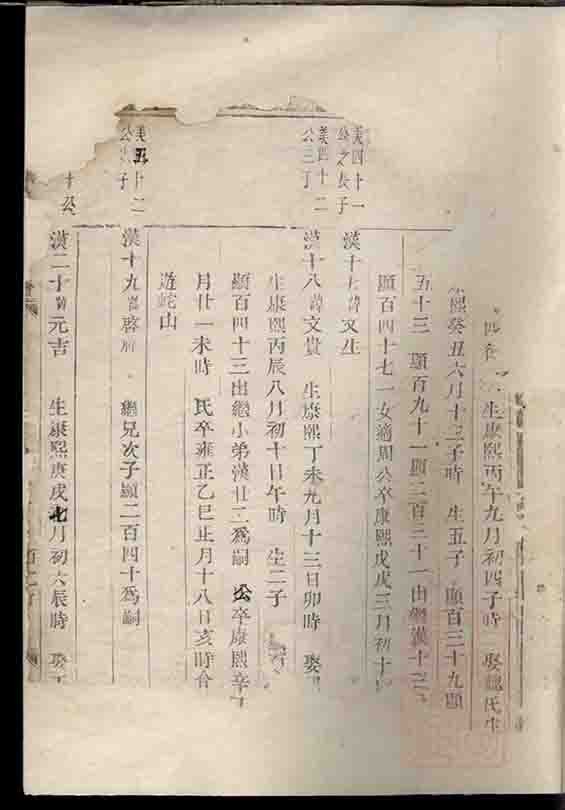 生康熙丙午九月初四子時 娶魏氏生
熙癸丑六月十三子時 生五子 顯百三十九顯
五十三 顯百九十一顯二百三十一出繼漢十
顯百四十七一女適周公卒康熙戊戌三月初十
美四十一
公之長子
漢十七諱文生
美四十二
公三子
漢十八諱文貴 生康熙丁未九月十三日卯時 娶
生康熙丙辰八月初十日午時 生二子
顯百四十三出繼小弟漢廿二爲嗣 公卒康熙辛
月廿一未時 氏卒雍正乙巳正月十八日亥時合
遊蛇山
美五十二
公 子
漢十九 啓 繼兄次子顯二百四十爲嗣
十公
漢二十諱元吉 生康熙庚戌七月初六辰時 娶